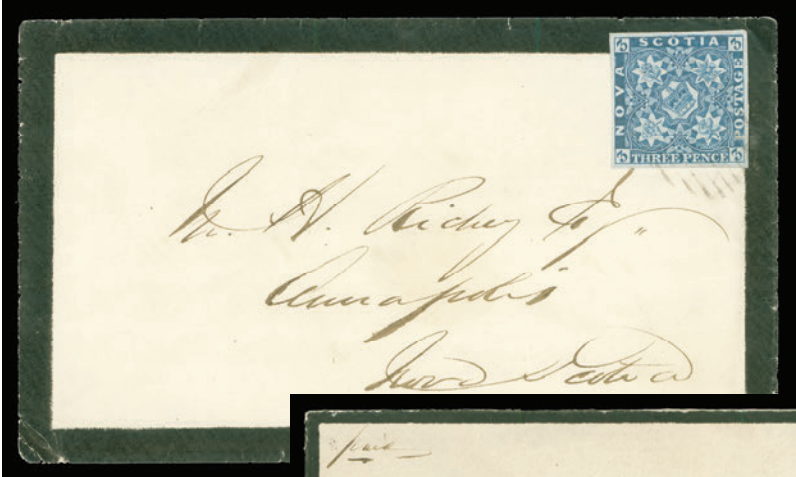 NOVA SCOTIA POSTAGE
THREE PENCE
M. H. Richey Esq
Annapolis
Nova Scotia
paid